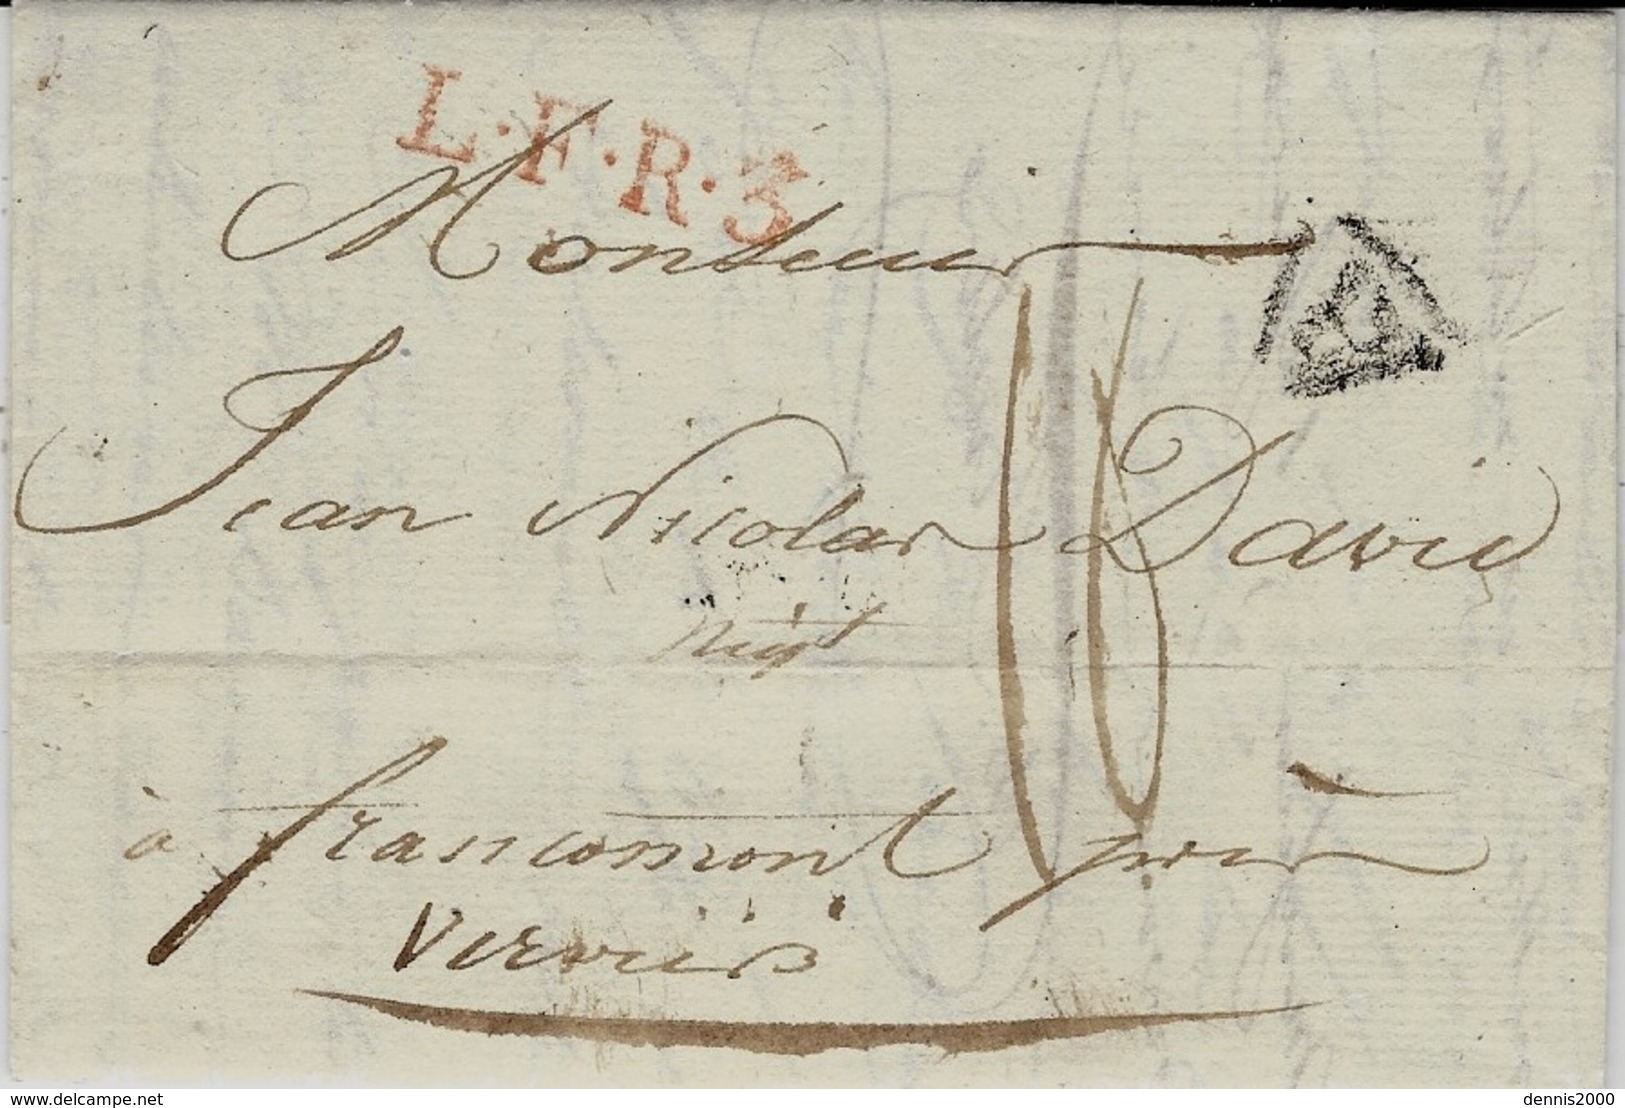 L.F.R.3
Monsieur
Jean Nicolas David
Negt
à francomont près
Verviers
delcampe.net
dennis2000